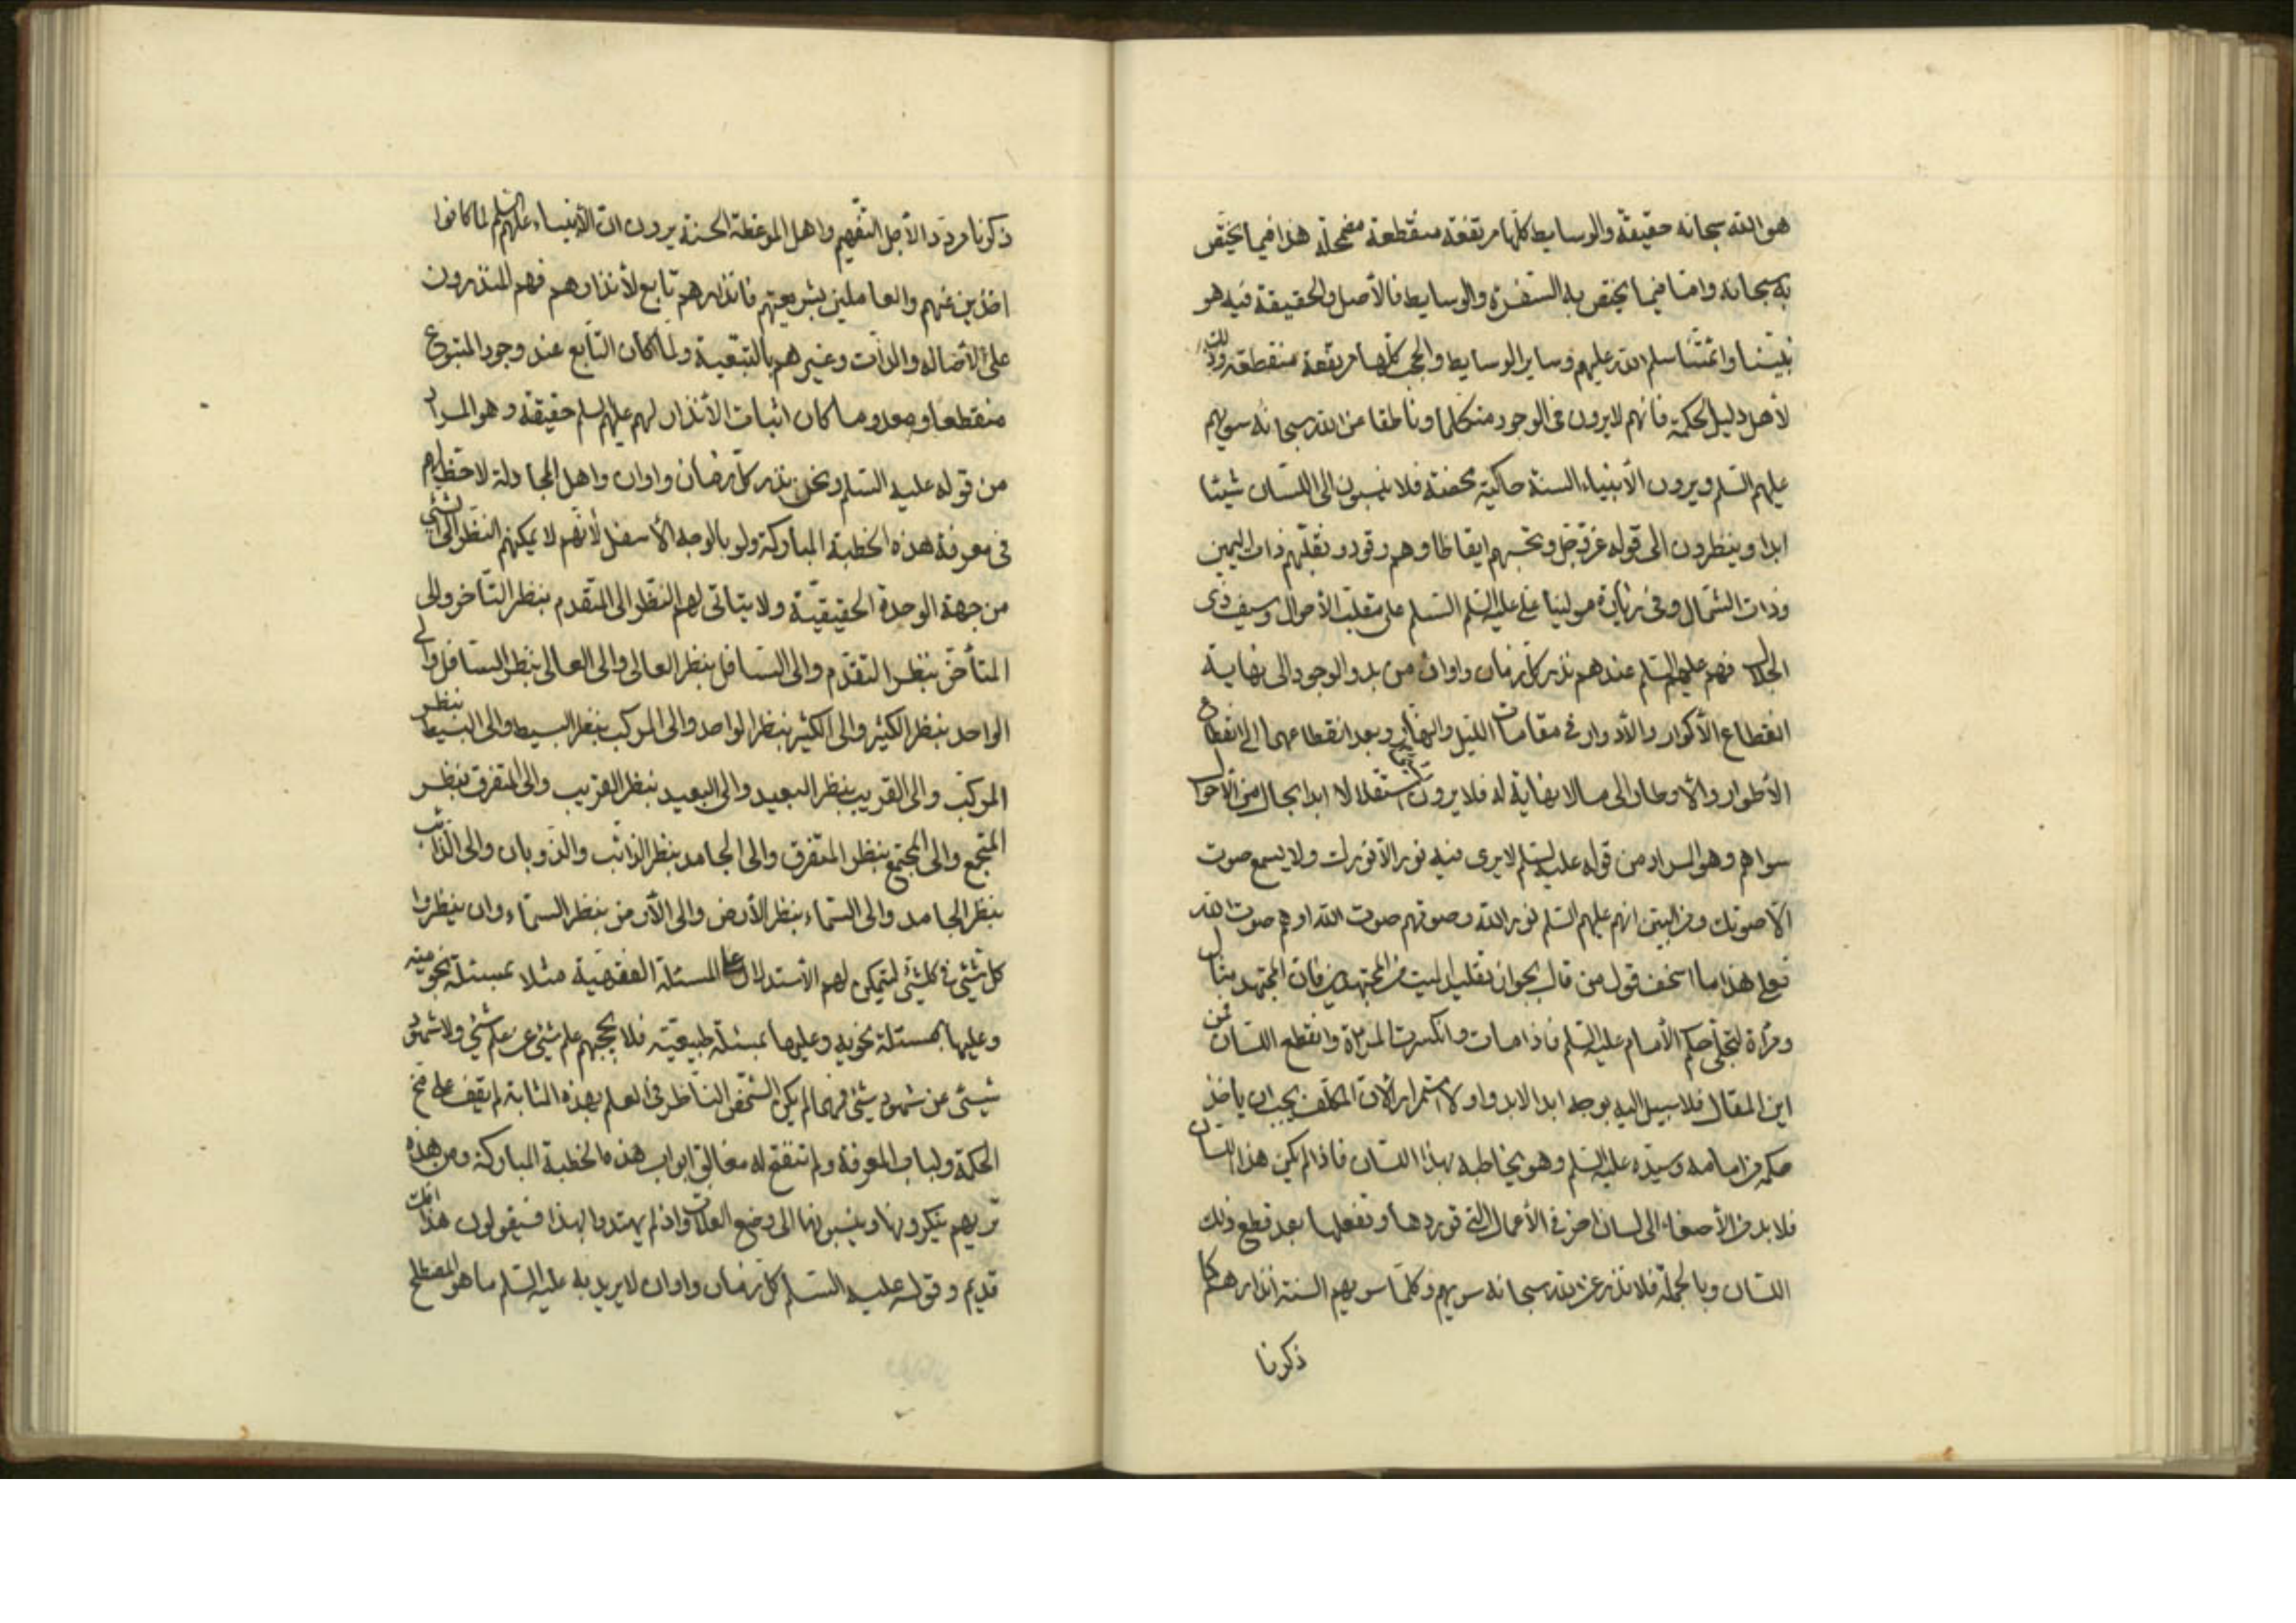 هو الله سبحانه حقيقة والوسايط كلها مرتفعة منقطعة مضمحلة هذا فيما يختص
به سبحانه واما فيما يختص به السفرة والوسايط فالأصل والحقيقة فيه هو
نبينا وائمتنا سلم الله عليهم وساير الوسايط والحجب كلها مرتفعة منقطعة وذلك
لأهل دليل الحكمة فانهم لا يرون في الوجود متكلما وناطقا من الله سبحانه سويهم
عليهم السلم ويرون الأنبياء السنة حاكية محضة فلا ينسبون الى اللسان شيئا
ابدا وينظرون الى قوله عز وجل وتحسبهم ايقاظا وهم رقود ونقلبهم ذات اليمين
وذات الشمال وفي زيارة مولينا علي عليه السلم السلم على مقلب الأحوال وسيف ذي
الجلال فهم عليهم السلم عندهم نذر كل زمان واوان من بدو الوجود الى نهاية
انقطاع الأكوار والأدوار في مقامات الليل والنهار وبعد انقطاعهما الى انقطاع
الأطوار والأوطار والى ما لا نهاية له فلا يرون استقلالا ابدا بحال من الأحوال
سواهم وهو المراد من قوله عليه السلم لا يرى فيه نور الا نورك ولا يسمع صوت
الا صوتك ومن البين انهم عليهم السلم نور الله وصوتهم صوت الله او هم صوت الله
فعلى هذا ما اسخف قول من قال بجواز تقليد الميت من المجتهدين فان المجتهد مثال
ومرآة لتجلي حكم الأمام عليه السلم فاذا مات وانكسرت المرآة وانقطع اللسان فمن
اين المقال فلا سبيل اليه بوجه ابد الابد ولا استمرار لأن المكلف يجب ان ياخذ
حكمه من امامه وسيده عليه السلم وهو يخاطبه بهذا اللسان فاذا لم يكن هذا اللسان
فلا بد من الأصغاء الى لسان اخر في الأعمال التي توردها وتفعلها بعد قطع ذلك
اللسان وبالجملة فلا نذر عن الله سبحانه سويهم وكلما سويهم السنة انذارهم كما
ذكرنا
ذكرنا مرددا لأجل التفهيم واهل الموعظة الحسنة يرون ان الأنبياء عليهم السلم لما كانوا
اخذين عنهم والعاملين بشريعتهم فانذارهم تابع لأنذارهم فهم المنذرون
على الأصالة والذات وغيرهم بالتبعية ولما كان التابع عند وجود المتبوع
منقطعا ومعدوما كان اثبات الأنذار لهم عليهم السلم حقيقة وهو المراد
من قوله عليه السلم ونحن نذر كل زمان واوان واهل المجادلة لا حظ لهم
في معرفة هذه الخطبة المباركة ولو بالوجه الأسفل لأنهم لا يمكنهم النظر الى شيئ
من جهة الوحدة الحقيقية ولا يتاتى لهم النظر الى المتقدم بنظر التأخر والى
المتأخر بنظر التقدم والى السافل بنظر العالى والى العالى بنظر السافل والى
الواحد بنظر الكثير والى الكثير بنظر الواحد والى المركب بنظر البسيط والى البسيط بنظر
المركب والى القريب بنظر البعيد والى البعيد بنظر القريب والى المتفرق بنظر
المجتمع والى المجتمع بنظر المتفرق والى الجامد بنظر الذائب والذوبان والى الذائب
بنظر الجامد والى السماء بنظر الأرض والى الأرض بنظر السماء وان ينظروا
كل شيئ في كلشيئ ليتمكن لهم الأستدلال على المسئلة الفقهية مثلا بمسئلة نجومية
وعليها بمسئلة نحوية وعليها بمسئلة طبيعية فلا يحجبهم علم شيئ عن علم شيئ ولا شهود
شيئ عن شهود شيئ فهما لم يكن الشخص الناظر في العلم بهذه المثابة لم يقف على مخ
الحكمة ولباب المعرفة ولم تنفتح له مغالق ابواب هذه الخطبة المباركة ومن هذه
تريهم ينكرونها وينسبونها الى وضع الغلات واذ لم يهتدوا بهذا فسيقولون هذا افك
قديم وقوله عليه السلم كل زمان واوان لا يريد به عليه السلم ما هو المصطلح